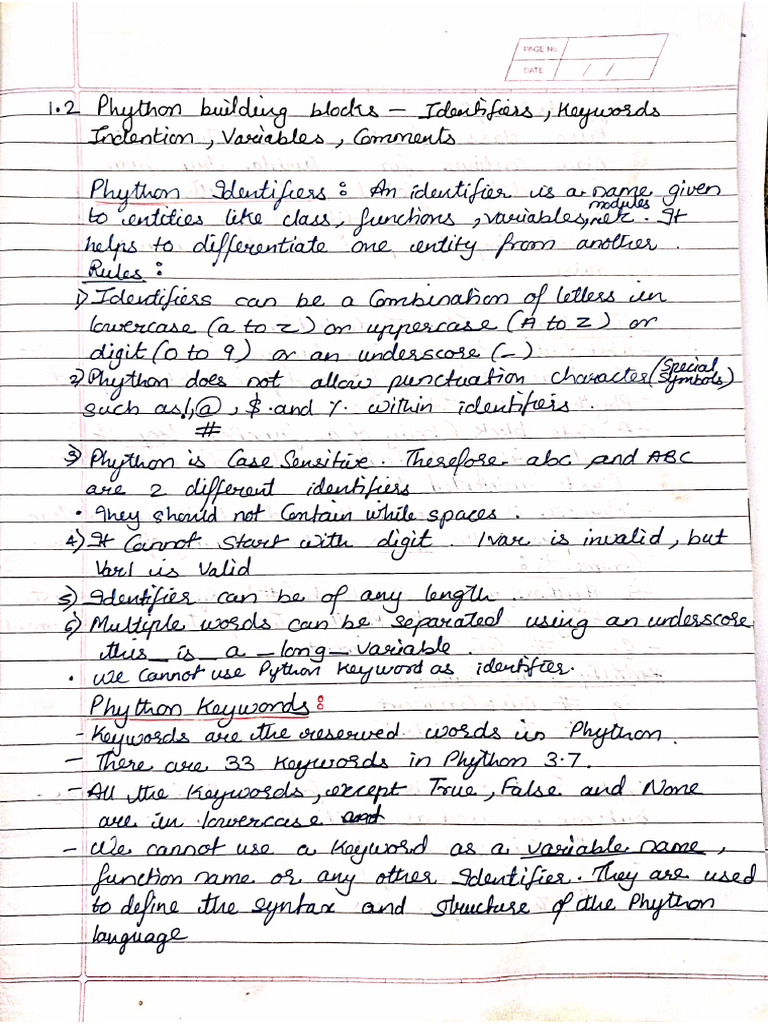 PAGE No.
DATE / /
1.2 Phython building blocks - Identifiers, Keywords
Indention, Variables, Comments
Phython Identifiers: An identifier is a name given
to entities like class, functions, variables, modules etc. It
helps to differentiate one entity from another.
Rules:
1) Identifiers can be a Combination of letters in
lowercase (a to z) or uppercase (A to Z) or
digit (0 to 9) or an underscore (_)
2) Phython does not allow punctuation character (Special Symbols)
such as !, @, $ and % within identifiers.
#
3) Phython is Case Sensitive. Therefore abc and ABC
are 2 different identifiers
• They should not Contain while spaces.
4) It Cannot Start with digit. 1var is invalid, but
Var1 is Valid
5) Identifier can be of any length.
6) Multiple words can be separated using an underscore
this_is_a_long_variable.
• We Cannot use Python Keyword as identifier.
Phython Keywords:
- Keywords are the reserved words in Phython.
- There are 33 Keywords in Phython 3.7.
- All the Keywords, except True, False and None
are in lowercase
- We cannot use a Keyword as a variable name,
function name or any other Identifier. They are used
to define the syntax and structure of the Phython
language